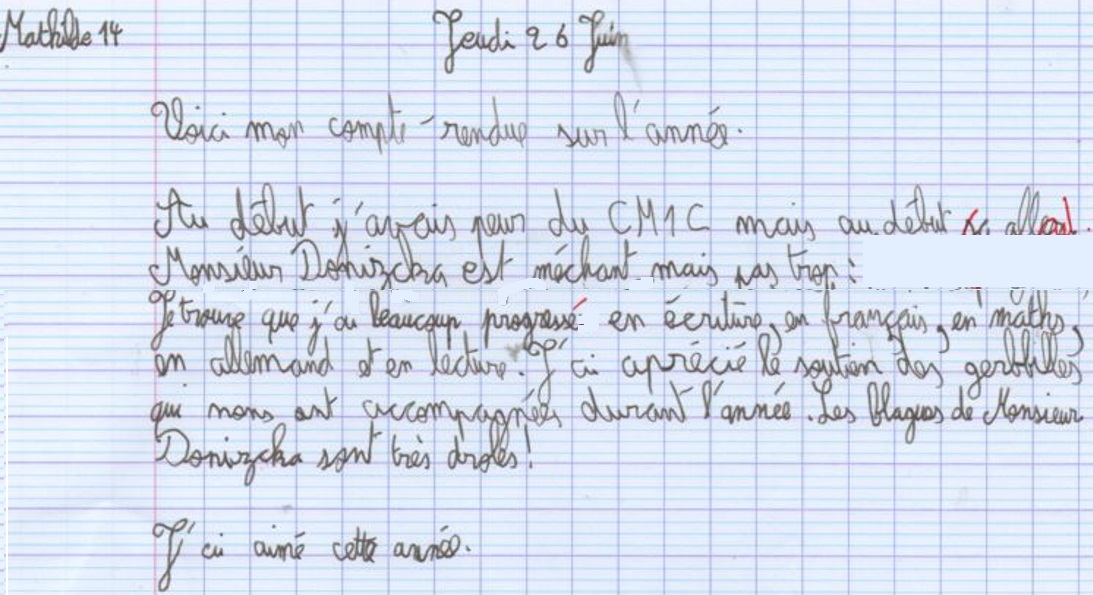 Mathilde 14
Jeudi 26 Juin
Voici mon compte-rendue sur l'année.
Au début j'avais peur du CM1C mais au début ça allait.
Monsieur Donizcka est méchant mais pas trop :
Je trouve que j'ai beaucoup progressé en écriture, en français, en maths,
en allemand et en lecture. J'ai aprécié le soutien des gerbilles
qui nous ont accompagnées durant l'année. Les blagues de Monsieur
Donizcka sont très droles!
J'ai aimé cette année.